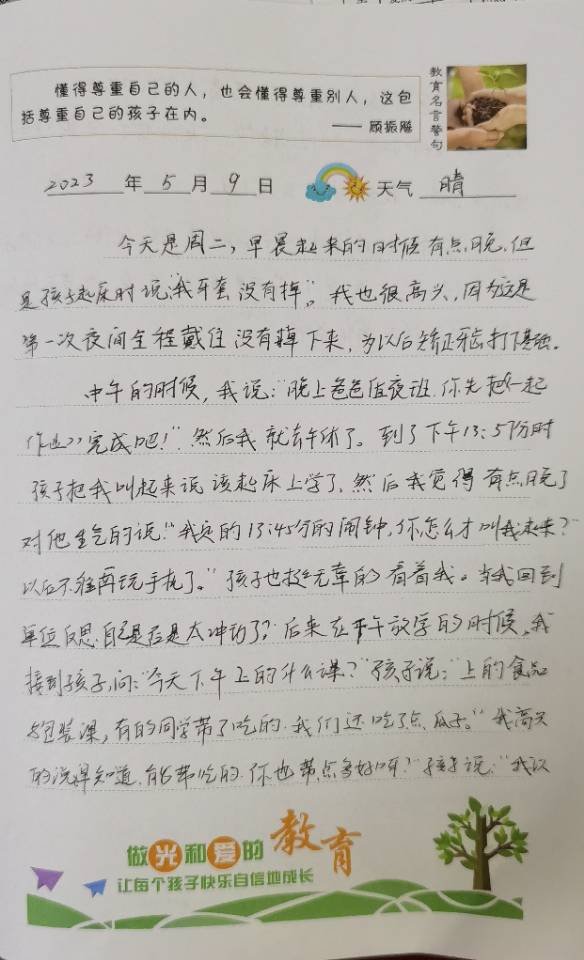 懂得尊重自己的人，也会懂得尊重别人，这包
括尊重自己的孩子在内。
—— 顾振飚
教育名言警句
2023 年 5 月 9 日 天气 晴
今天是周二，早晨起来的时候有点晚，但
是孩子起床时说"我牙套没有掉"。我也很高兴，因为这是
第一次夜间全程戴住没有掉下来，为以后矫正牙齿打下基础。
中午的时候，我说："晚上爸爸值夜班，你先把《一起
作业》完成吧！"然后我就去午休了。到了下午13:57分时
孩子把我叫起来说该起床上学了，然后我觉得有点晚了
对他生气的说："我定的13:45分的闹钟，你怎么才叫我起来？
以后不准再玩手机了。"孩子也挺无辜的看着我。当我回到
单位反思自己是否是太冲动了？后来在下午放学的时候，我
接到孩子，问："今天下午上的什么课？"孩子说："上的食品
与包装课，有的同学带了吃的，我们还吃了点瓜子。"我高兴
的说早知道能带吃的，你也带点多好呀！"孩子说："我以
做光和爱的教育
让每个孩子快乐自信地成长